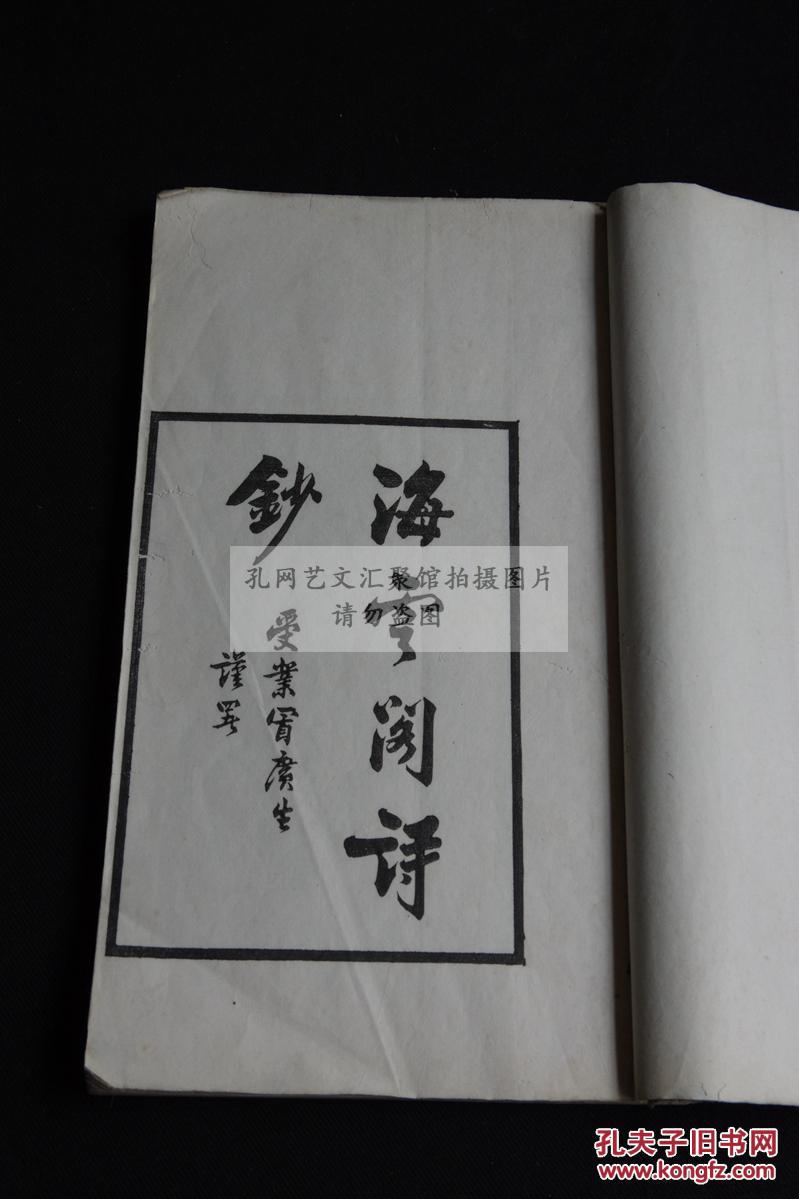 海雲阁詩
鈔
受業冒廣生
謹署
孔网艺文汇聚馆拍摄图片
请勿盗图
孔夫子旧书网
www.kongfz.com